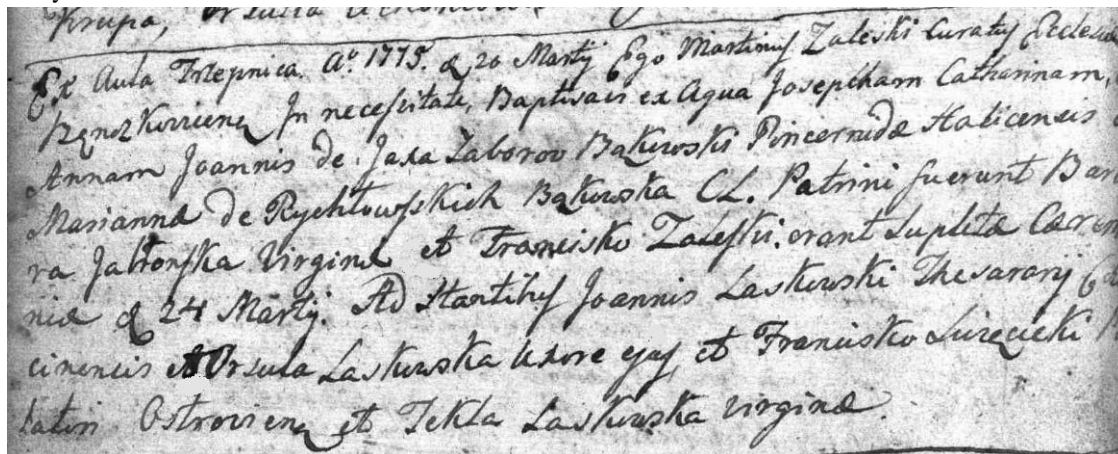 Krupa, Orsula
Ex Aula Trzepnica. Aº 1775. d 20 Martij Ego Martinus Zaleski Curatus Ecclesiae
Ręnczkoviens In necessitate, Baptisavi ex Aqua Josepham Catharinam,
Annam Joannis de Jaxa Zaborov Bąkowski Pincernidæ Haliciensis
Marianna de Rychłowskich Bąkowska CL. Patrini fuerunt Bar
ra Jabłonska Virginæ et Francisko Zaleski. erant Supletæ Cærem
niæ d 24 Martij. Ad Stantibus Joannis Laskowski Thesararij
cinensis et Orsula Laskowska Uxore ejus et Francisko
Ostroviens et Tekla Laskowska virginæ.